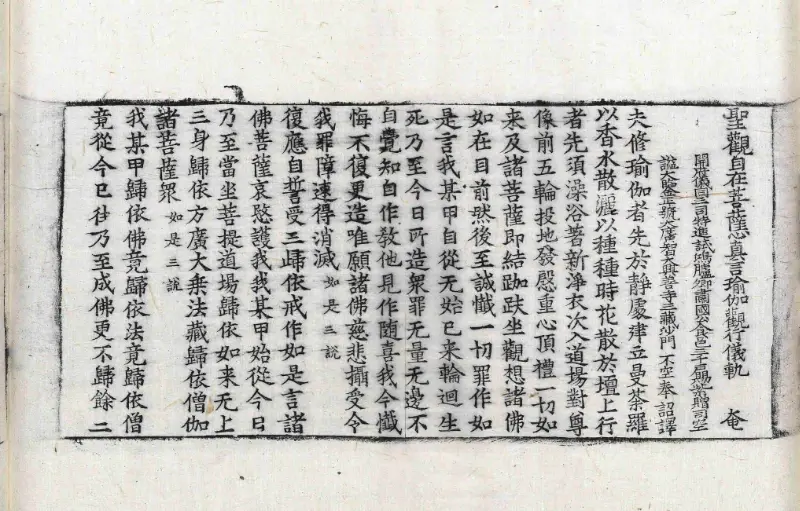 聖觀自在菩薩心真言瑜伽觀行儀軌 奄
開府儀同三司特進試鴻臚卿肅國公食邑三千戶賜紫贈司空
謚大鑒正號大廣智大興善寺三藏沙門 不空 奉 詔譯
夫修瑜伽者先於静處建立曼荼羅
以香水散灑以種種時花散於壇上行
者先須澡浴著新淨衣次入道場對尊
像前五輪投地發慇重心頂禮一切如
来及諸菩薩即結跏趺坐觀想諸佛
如在目前然後至誠懺一切罪作如
是言我某甲自從无始已来輪迴生
死乃至今日所造衆罪无量无邊不
自覺知自作教他見作随喜我今懺
悔不復更造唯願諸佛慈悲攝受令
我罪障速得消滅 如是三說
復應自誓受三歸依戒作如是言諸
佛菩薩哀愍護我我某甲始從今日
乃至當坐菩提道場歸依如来无上
三身歸依方廣大乗法藏歸依僧伽
諸菩薩衆 如是三說
我某甲歸依佛竟歸依法竟歸依僧
竟從今已往乃至成佛更不歸餘二